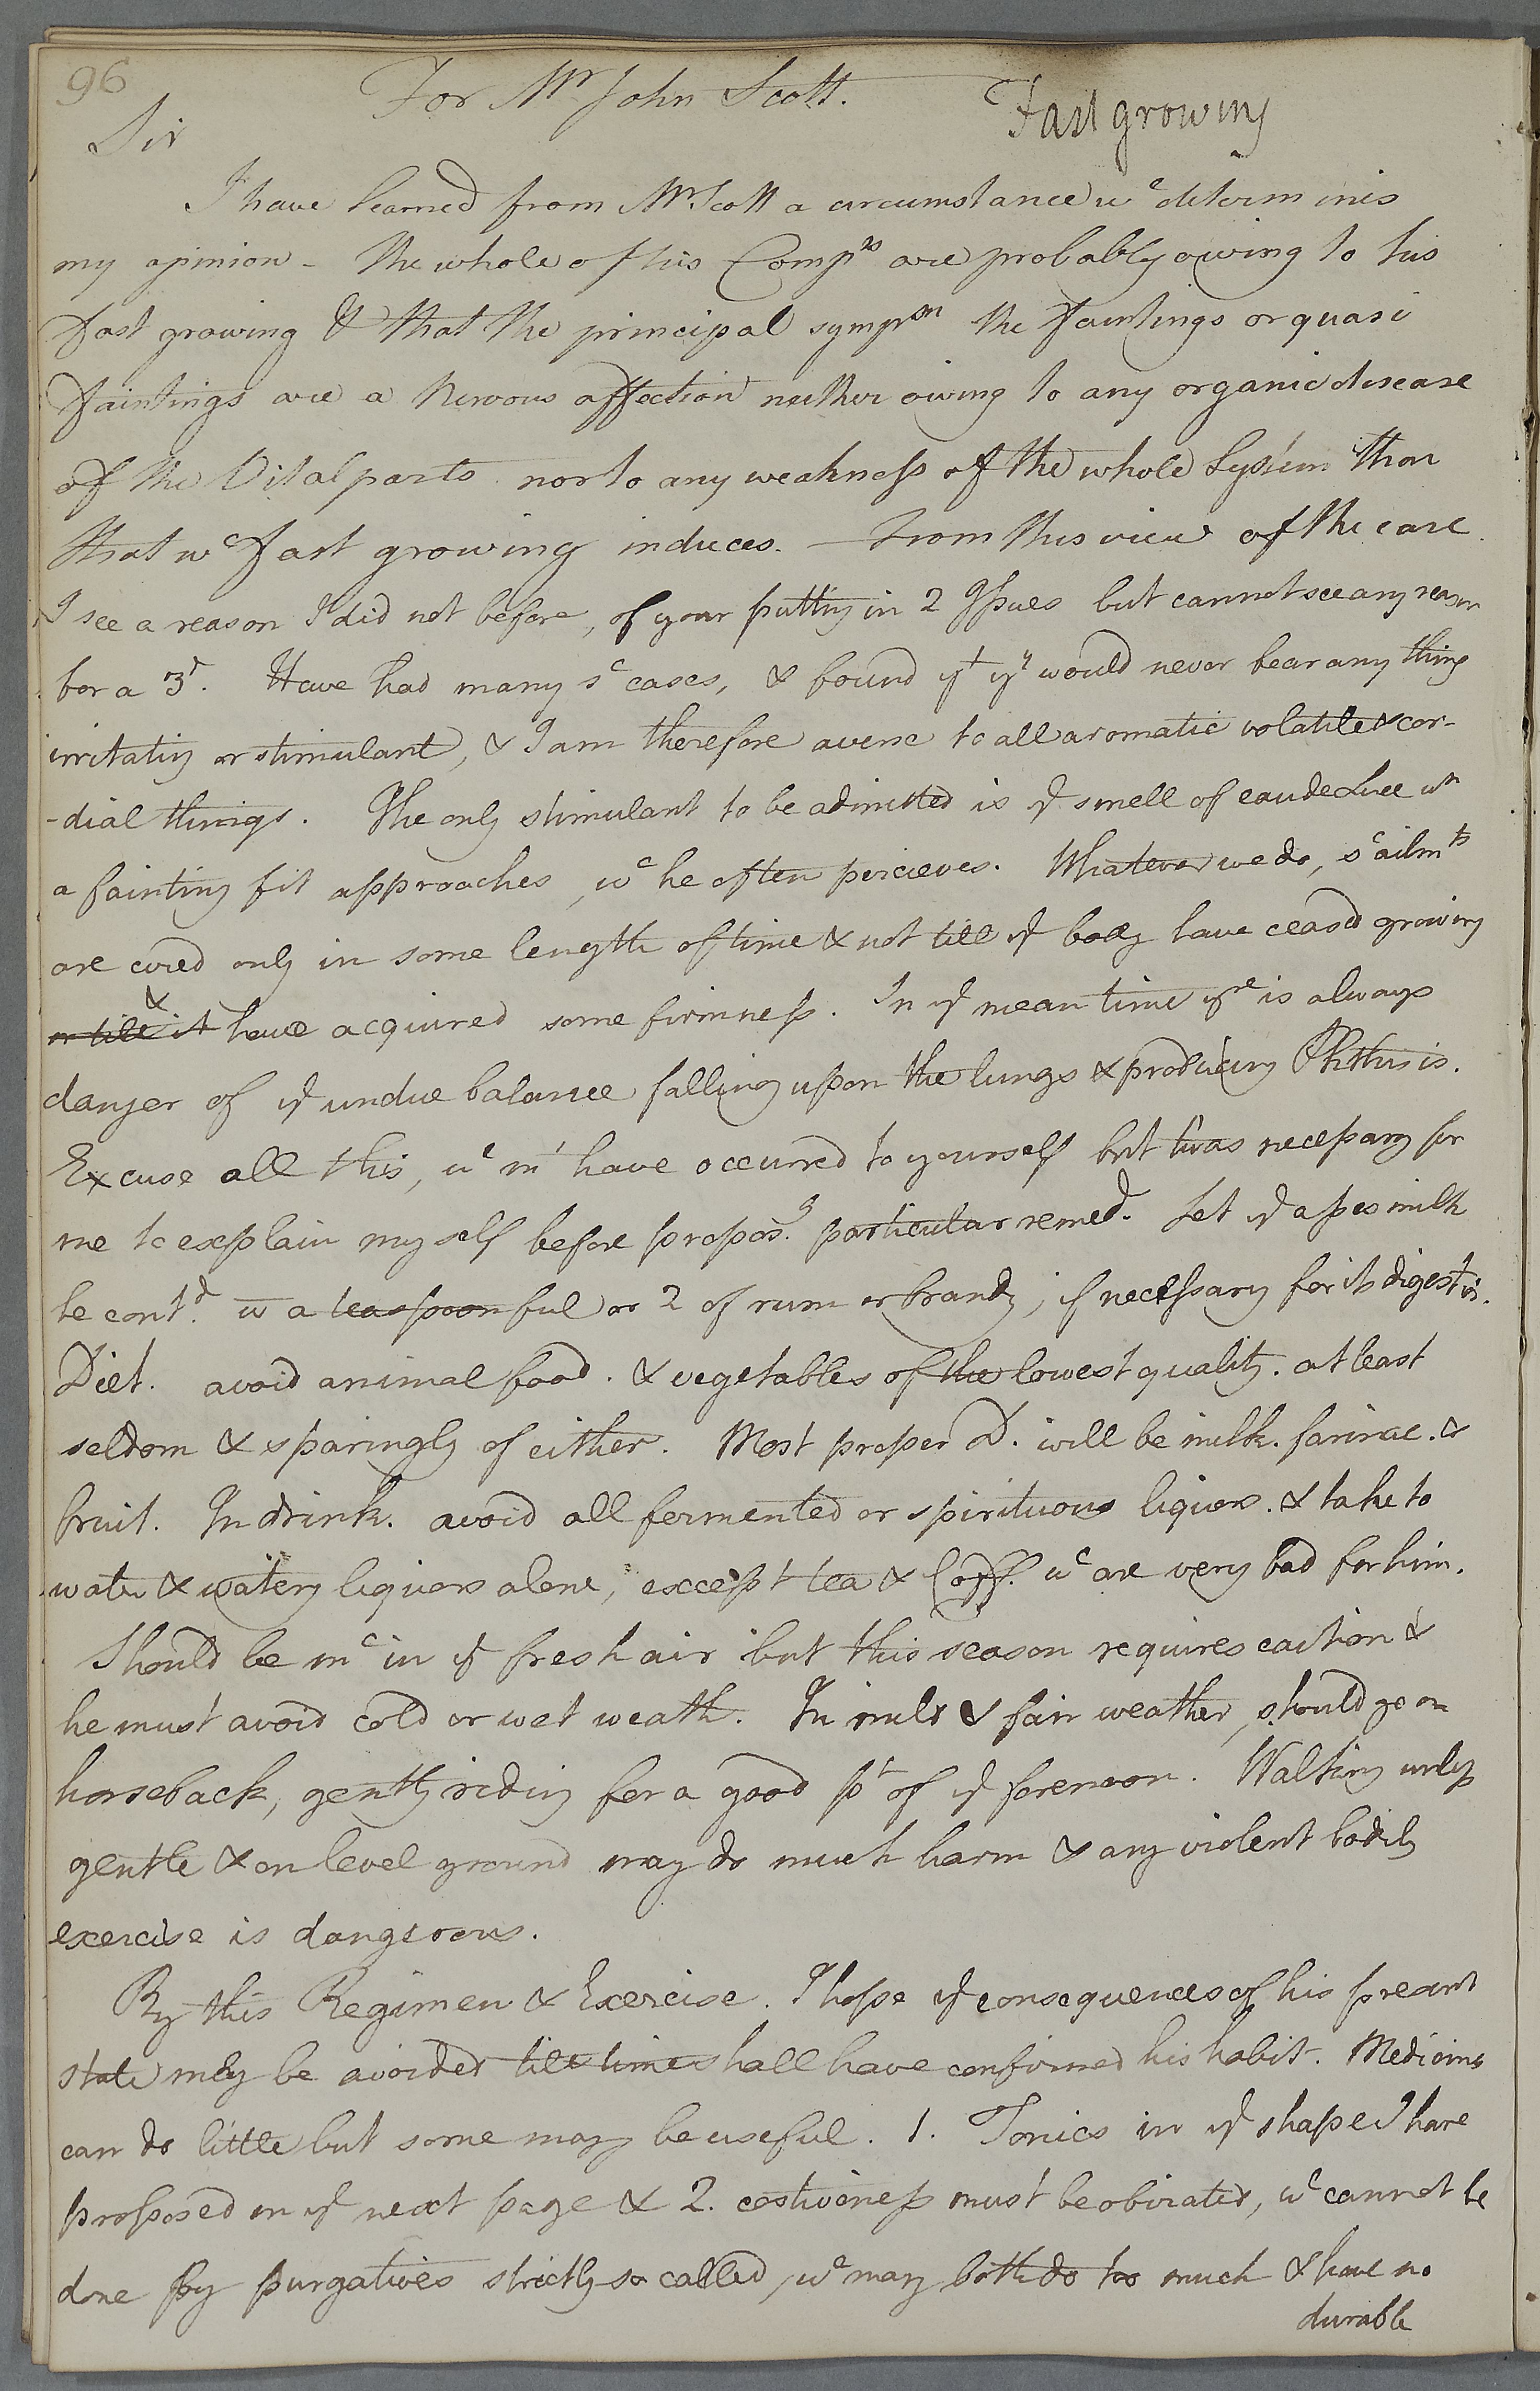 96
For Mr John Scott.
Fast growing
Sir
I have learned from Mr Scott a circumstance wc determines
my opinion - The whole of his Compts are probably owing to his
fast growing & that the principal sympm the Faintings or quasi
faintings are a Nervous affection neither owing to any organic disease
of the Vital parts nor to any weakness of the whole System than
that wc fast growing induces. — From this view of the case
I see a reason I did not before, of your putting in 2 Issues but cannot see any reason
for a 3d. Have had many sc cases, & found yt yy would never bear any thing
irritating or stimulant, & I am therefore averse to all aromatic volatile & cor-
-dial things. The only stimulant to be admitted is ye smell of eau de Luce wn
a fainting fit approaches, wc he often percieves. Whatever we do, sc ailmts
are cured only in some length of time & not till ye body have ceased growing
or till it & have acquired some firmness. In ye mean time yre is always
danger of ye undue balance falling upon the lungs & producing Phthisis.
Excuse all this, wc mt have occurred to yourself but twas necessary for
me to explain my self before propos.g particular remed. Let ye asses milk
be contd. w a teaspoonful or 2 of rum or brandy, if necessary for its digestn.
Diet. avoid animal food. & vegetables of the lowest quality. at least
seldom & sparingly of either. Most proper D. will be milk. farinac. &
fruit. In drink. avoid all fermented or spirituous liquors. & take to
water & watery liquors alone, except tea & Coff. wc are very bad for him.
Should be mc in ye fresh air but this season requires caution &
he must avoid cold or wet weath. In mild & fair weather, should go on
horseback, gently riding for a good pt of ye forenoon. Walking unless
gentle & on level ground may do much harm & any violent bodily
exercise is dangerous.
By this Regimen & Exercise. I hope ye consequences of his present
state may be avoided till time shall have confirmed his habit. Medicines
can do little but some may be useful. 1. Tonics in ye shape I have
proposed on ye next page & 2. costiveness must be obviated, wc cannot be
done by purgatives strictly so called, wc may both do too much & have no
durable